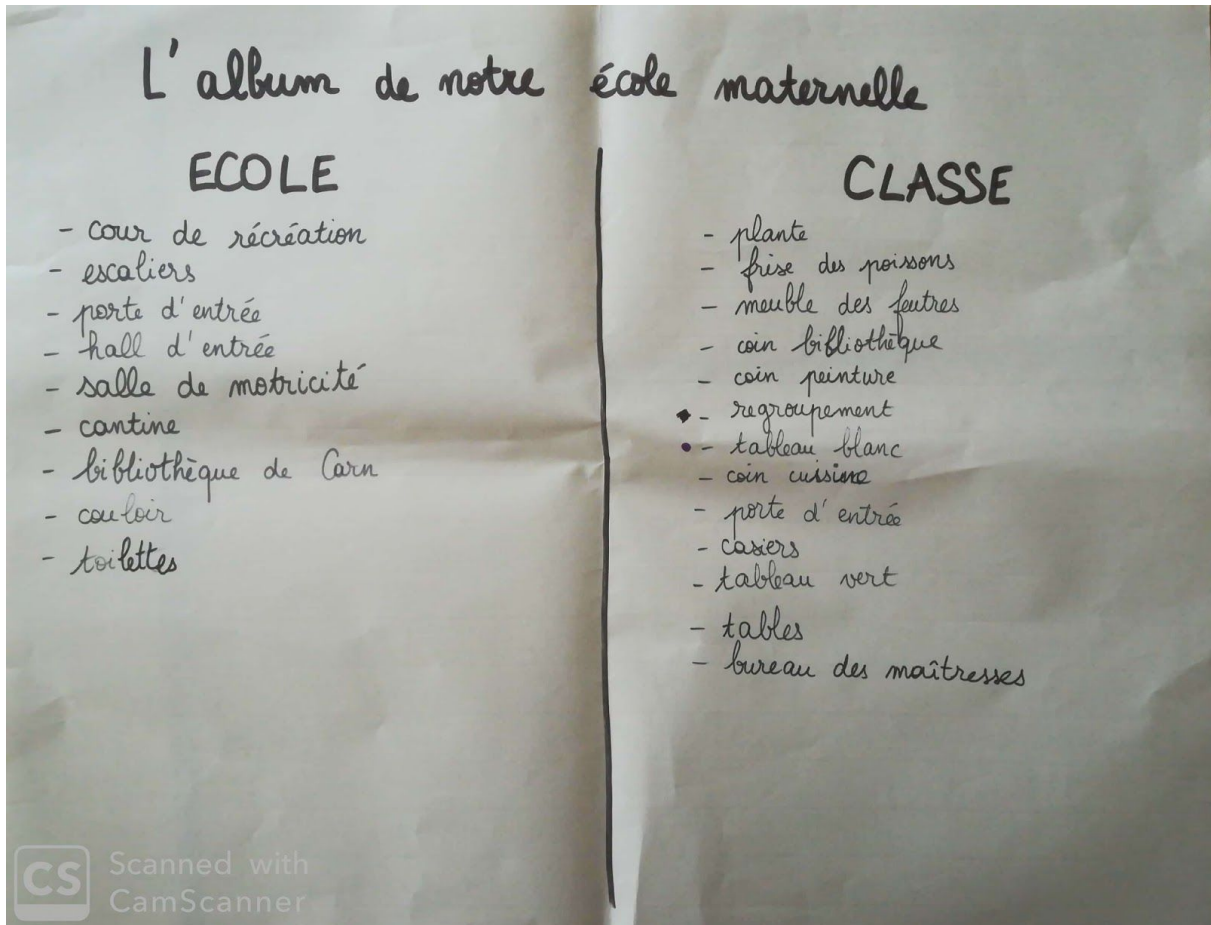 L'album de notre école maternelle
ECOLE
- cour de récréation
- escaliers
- porte d'entrée
- hall d'entrée
- salle de motricité
- cantine
- bibliothèque de Carn
- couloir
- toilettes
CLASSE
- plante
- frise des poissons
- meuble des feutres
- coin bibliothèque
- coin peinture
- regroupement
- tableau blanc
- coin cuisine
- porte d'entrée
- casiers
- tableau vert
- tables
- bureau des maîtresses
CS Scanned with
CamScanner